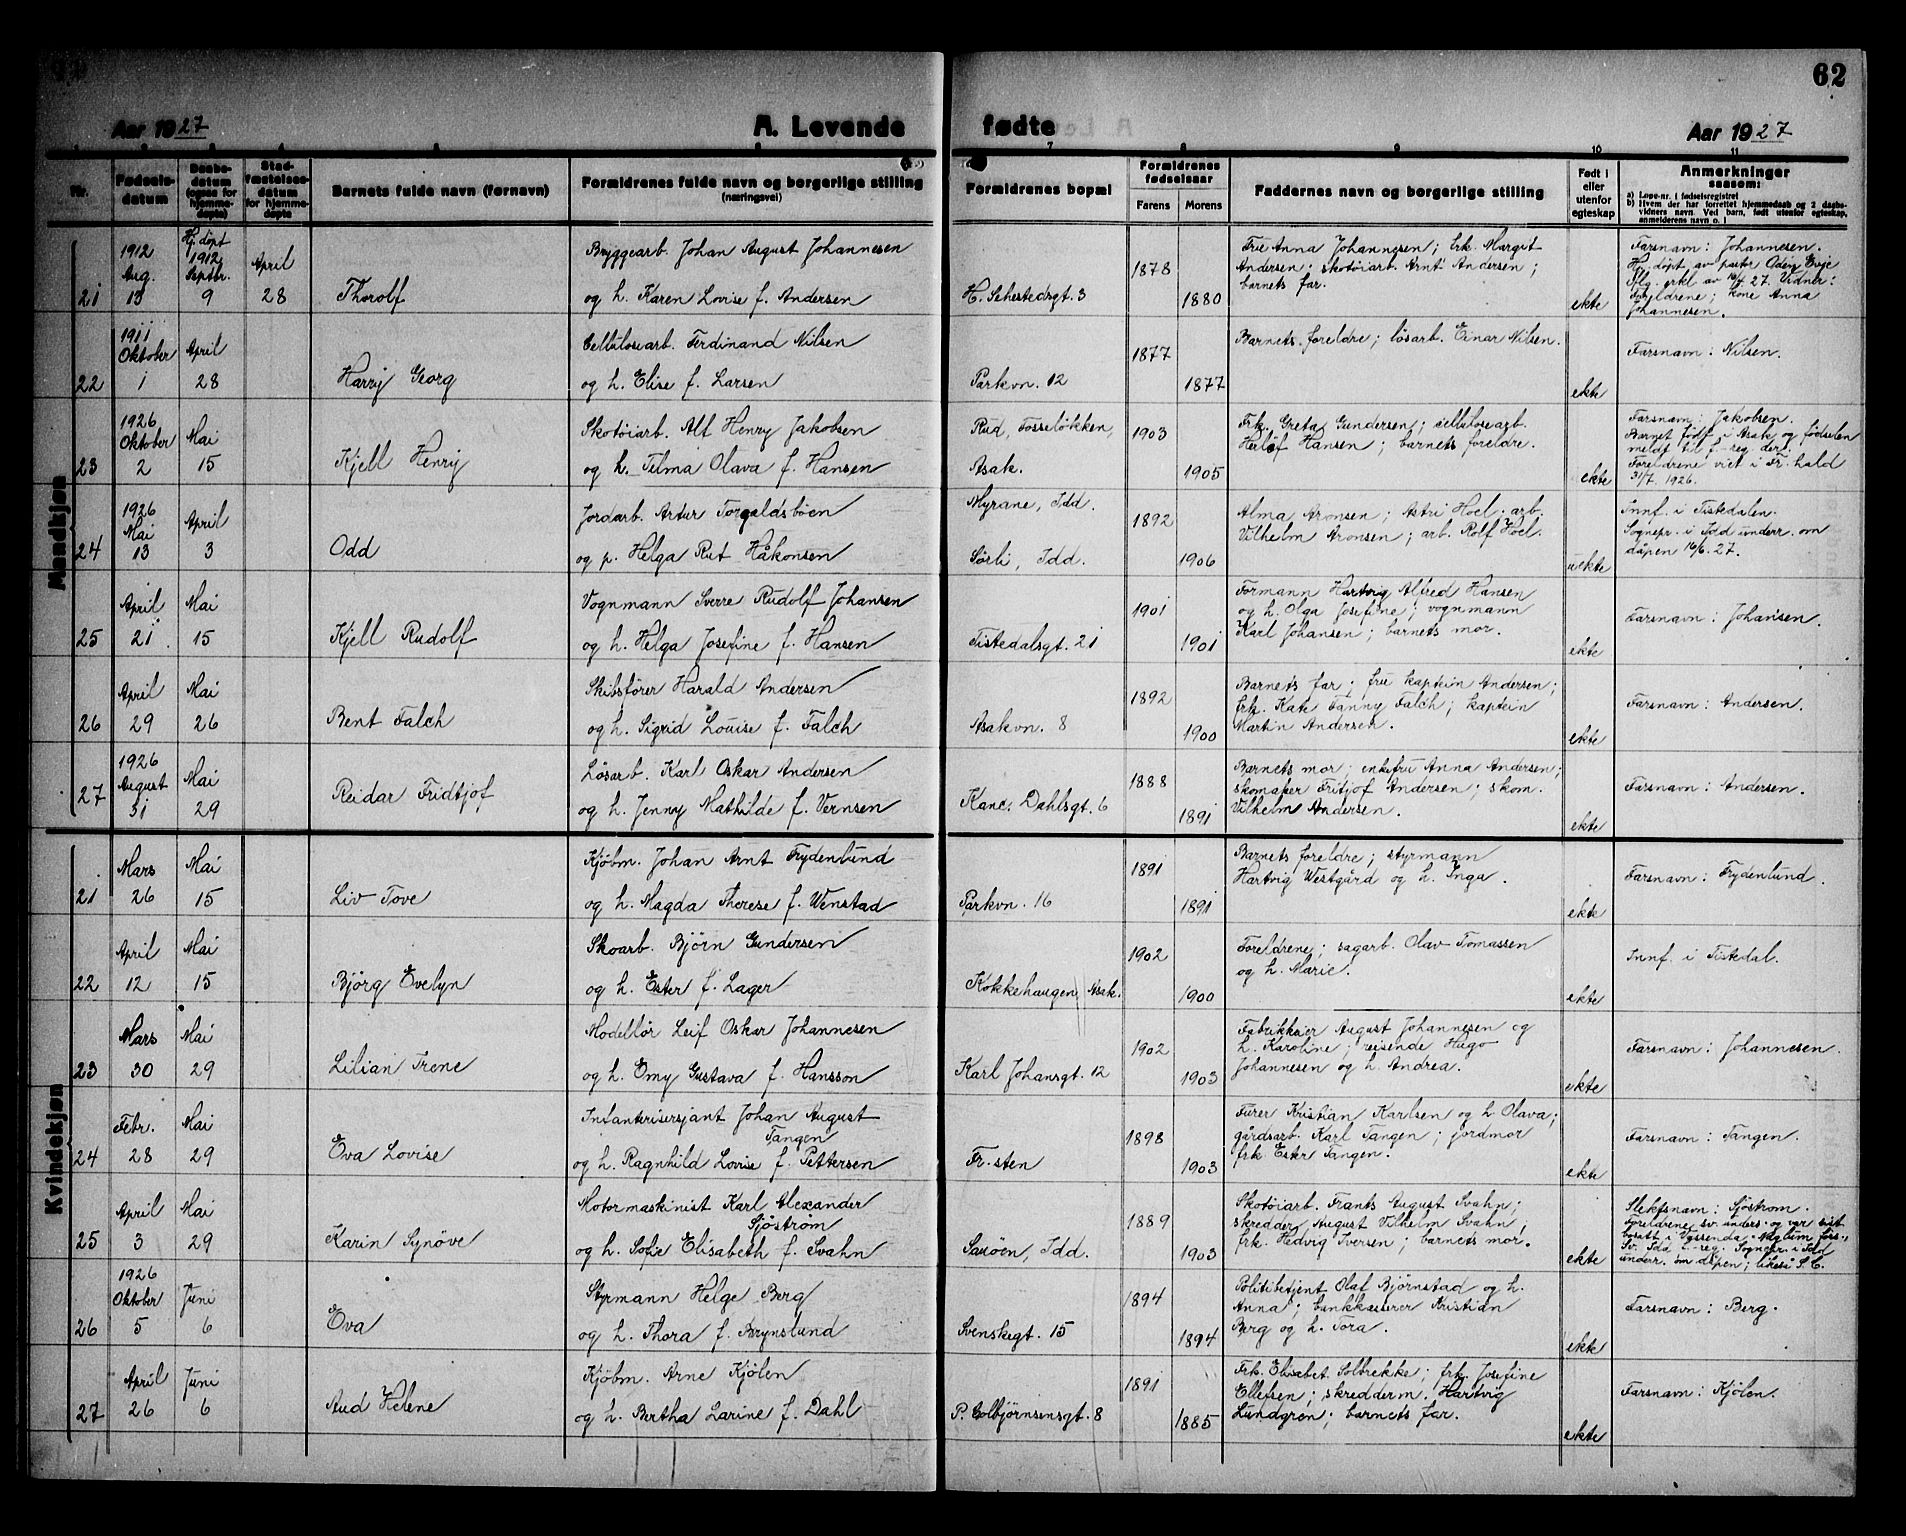 62
Aar 1927
A. Levende
fødte
Aar 1927
Nr.
Fødsels-
datum
Daabs-
datum
(ogsaa for
hjemme-
døpte)
Stad-
fæstelses-
datum
for hjemme-
døpte
Barnets fulde navn (fornavn)
Forældrenes fulde navn og borgerlige stilling
(næringsvei)
7
Forældrenes bopæl
8
Forældrenes
fødselsaar
Farens
Morens
9
Faddernes navn og borgerlige stilling
10
Født i
eller
utenfor
egteskap
11
Anmerkninger
saasom:
a) Løpe-nr. i fødselsregistret
b) Hvem der har forrettet hjemmedaab og 2 daabs-
vidners navn. Ved barn, født utenfor egteskap,
anmelderens navn o. l
Mandkjøn
21
1912
Aug.
13
Hj.døpt
1912
Septbr.
9
April
28
Thorolf
Bryggearb. Johan August Johannesen
og h. Karen Lovise f. Andersen
H. Sehestedsgt. 3
1878
1880
Frue Anna Johannesen; frk. Margit
Andersen; skotøiarb. Arnt Andersen;
barnets far.
ekte
Farsnavn: Johannesen.
Hj.døpt av pastor Oden Evje
iflg. erkl. av 16/4 27. Vidner:
Foreldrene; kone Anna
Johannesen.
22
1911
Oktober
1
April
28
Harry Georg
Celluloseiarb. Ferdinand Nilsen
og h. Elise f. Larsen
Parkvn. 12
1877
1877
Barnets foreldre; løsarb. Einar Nilsen.
ekte
Farsnavn: Nilsen.
23
1926
Oktober
2
Mai
15
Kjell Henry
Skotøiarb. Alf Henry Jakobsen
og h. Telma Olava f. Hansen
Rud, Fosseløkken,
Asak.
1903
1905
Frk. Greta Gundersen; cellulosearb.
Herlof Hansen; barnets foreldre.
ekte
Farsnavn: Jakobsen.
Barnet født i Asak og fødselen
meldt til f.-reg. der.
Foreldrene viet i Fr.hald
31/7. 1926.
24
1926
Mai
13
April
3
Odd
Jordarb. Artur Torgaldsbøen
og p. Helga Rut Håkonsen
Myrane, Idd.
Sørli, Idd.
1892
1906
Alma Aronsen; Astri Hoel; arb.
Vilhelm Aronsen; arb. Rolf Hoel.
uekte
Innf. i Tistedalen.
Sognepr. i Idd underr. om
dåpen 16/6. 27.
25
April
21
Mai
15
Kjell Rudolf
Vognmann Sverre Rudolf Johansen
og h. Helga Josefine f. Hansen
Tistedalsgt. 21
1901
1901
Formann Hartvig Alfred Hansen
og h. Olga Josefine; vognmann
Karl Johansen; barnets mor.
ekte
Farsnavn: Johansen.
26
April
29
Mai
26
Bent Falch
Skibsfører Harald Andersen
og h. Sigrid Louise f. Falch
Asakvn. 8
1892
1900
Barnets far; frue kaptein Andersen;
frk. Kate Fanny Falch; kaptein
Martin Andersen.
ekte
Farsnavn: Andersen.
27
1926
August
31
Mai
29
Reidar Fridtjof
Løsarb. Karl Oskar Andersen
og h. Jenny Mathilde f. Vernsen
Kanc. Dahlsgt. 6
1888
1891
Barnets mor; enkefru Anna Andersen;
skomaker Fritjof Andersen; skom.
Vilhelm Andersen.
ekte
Farsnavn: Andersen.
Kvindekjøn
21
Mars
26
Mai
15
Liv Tove
Kjøbm. Johan Arnt Frydenlund
og h. Magda Therese f. Wenstad
Parkvn. 16
1891
1891
Barnets foreldre; styrmann
Hartvig Westgård og h. Inga.
ekte
Farsnavn: Frydenlund.
22
April
12
Mai
15
Bjørg Evelyn
Skoarb. Bjørn Gundersen
og h. Ester f. Lager
Kokkehaugen, Asak.
1902
1900
Foreldrene; sagarb. Olav Tomassen
og h. Marie.
ekte
Innf. i Tistedal.
23
Mars
30
Mai
29
Lilian Irene
Modellør Leif Oskar Johannesen
og h. Emy Gustava f. Hansson
Karl Johansgt. 12
1902
1903
Fabrikkeier August Johannesen og
h. Karoline; reisende Hugo
Johannesen og h. Andrea.
ekte
Farsnavn: Johannesen.
24
Febr.
28
Mai
29
Eva Lovise
Infanterisersjant Johan August
Tangen
og h. Ragnhild Lovise f. Pettersen
Fr.sten
1898
1903
Furer Kristian Karlsen og h. Olava;
gårdsarb. Karl Tangen; jordmor
frk. Ester Tangen.
ekte
Farsnavn: Tangen.
25
April
3
Mai
29
Karin Synøve
Motormaskinist Karl Alexander
Sjøstrøm
og h. Sofie Elisabeth f. Svahn
Sauøen, Idd.
1889
1903
Skotøiarb. Frants August Svahn;
skredder August Vilhelm Svahn;
frk. Hedvig Iversen; barnets mor.
ekte
Slektsnavn: Sjöstrom.
Foreldrene sv. unders. og var sist
bosatt i
underr. om dåpen; likeså S.C.
26
1926
Oktober
5
Juni
6
Eva
Styrmann Helge Berg
og h. Thora f. Brynslund
Svenskegt. 15
1894
1894
Politibetjent Olaf Bjørnstad og h.
Anna; bankkasserer Kristian
Berg og h. Tora.
ekte
Farsnavn: Berg.
27
April
26
Juni
6
Aud Helene
Kjøbm. Arne Kjølen
og h. Bertha Larine f. Dahl
P. Colbjørnsensgt. 8
1891
1885
Frk. Elisabet Solbrekke; frk. Josefine
Ellefsen; skredderm. Hartvig
Lundgren; barnets far.
ekte
Farsnavn: Kjølen.